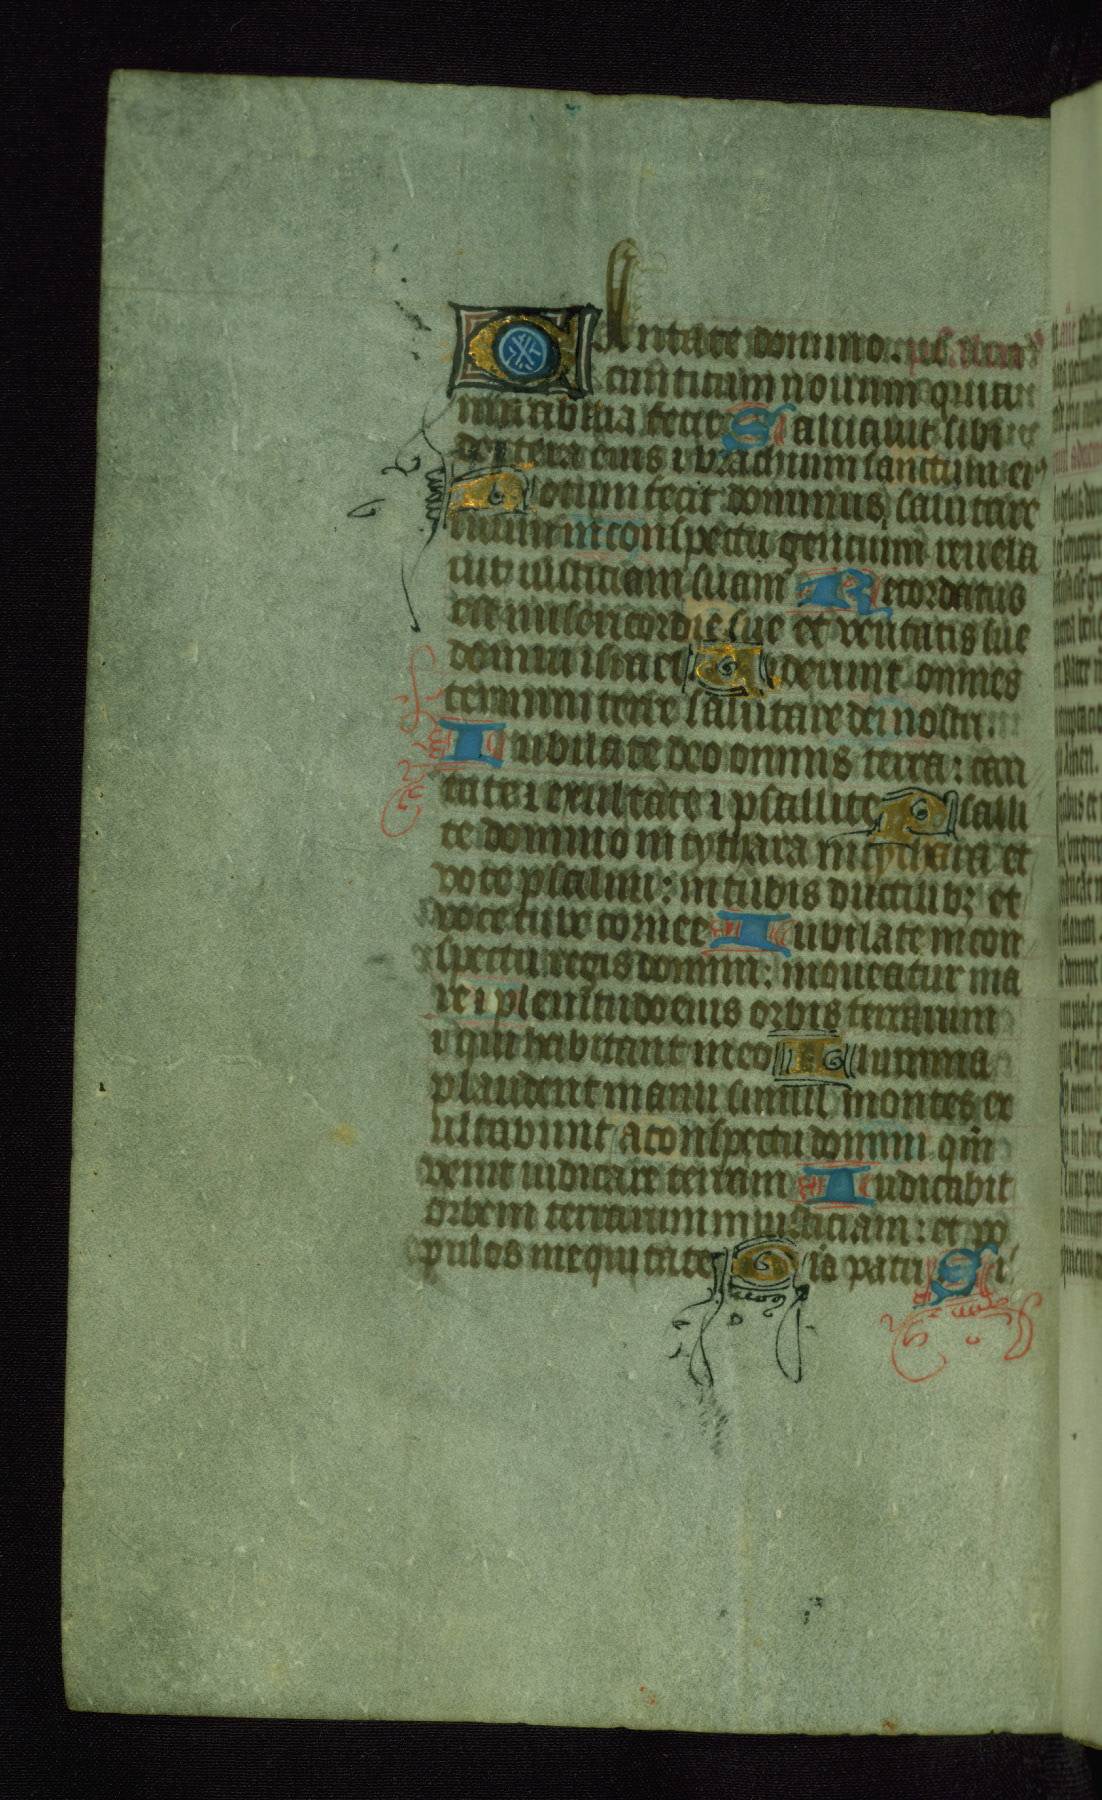 Cantate domino. psalmus
canticum nouum quia
mirabilia fecit Saluauit sibi
dextera eius ⁊ brachium sanctum ei9
Notum fecit dominus salutare
suum in conspectu gentium reuela
uit iusticiam suam Recordatus
est misericordie sue et veritatis sue
domui israel Viderunt omnes
termini terre salutare dei nostri.
Iubilate deo omnis terra: can
tate ⁊ exultate ⁊ psallite Psalli
te domino in cythara in cythara et
voce psalmi: in tubis ductilibꝫ et
voce tube cornee Iubilate in con
spectu regis domini: moueatur ma
re ⁊ plenitudo eius orbis terrarum
⁊ qui habitant in eo Flumina
plaudent manu simul montes ex
ultabunt a conspectu domini qm̄
venit iudicare terram Iudicabit
orbem terrarum in iusticiam: et po
pulos in equitate Gl̄ia patri Si